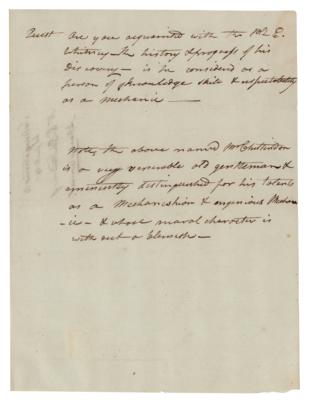 Quest Are you acquainted with the Mr E.
Whitney—the history & progress of his
Discovery— is he considered as a
person of knowledge skill & respectability
as a Mechanic—
Note, the above named Mr Chittenden
is a very venerable old gentleman &
eminently distinguished for his talents
as a Mechanishion & ingenious Mechan
ic— & whose moral character is
with out a Blemish—